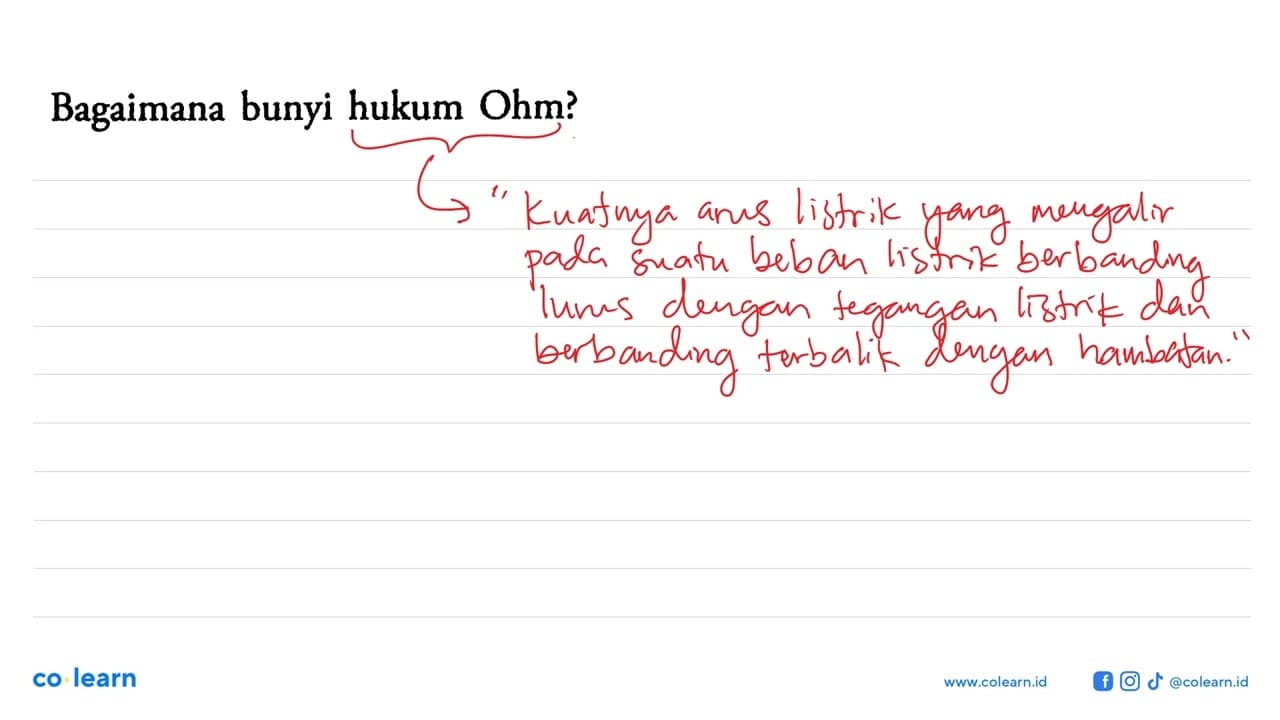 Bagaimana bunyi hukum Ohm?
"Kuatnya arus listrik yang mengalir
pada suatu beban listrik berbanding
lurus dengan tegangan listrik dan
berbanding terbalik dengan hambatan."
co learn
www.colearn.id
@colearn.id